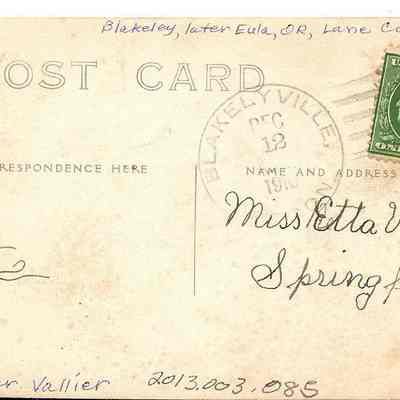 Blakeley, later Eula, OR, Lane Co
POST CARD
BLAKELYVILLE,
DEC
12
RESPONDENCE HERE
NAME AND ADDRESS
Miss Etta V
Springf
Vallier 2013.003.085